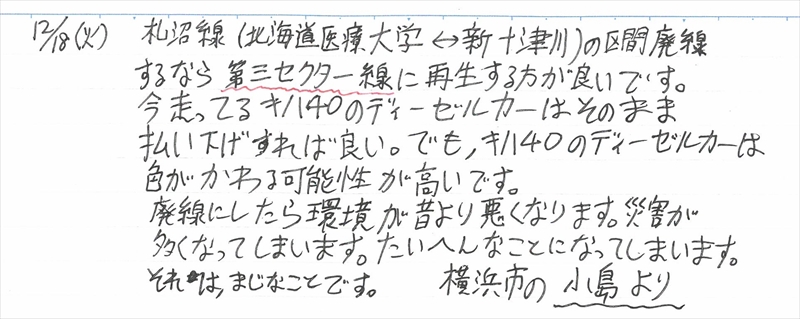 12/18(火) 札沼線(北海道医療大学↔新十津川)の区間廃線
するなら第三セクター線に再生する方が良いです。
今走ってるキハ40のディーゼルカーはそのまま
払い下げすれば良い。でも,キハ40のディーゼルカーは
色がかわる可能性が高いです。
廃線にしたら環境が昔より悪くなります。災害が
多くなってしまいます。たいへんなことになってしまいます。
それは,まじなことです。 横浜市の小島より